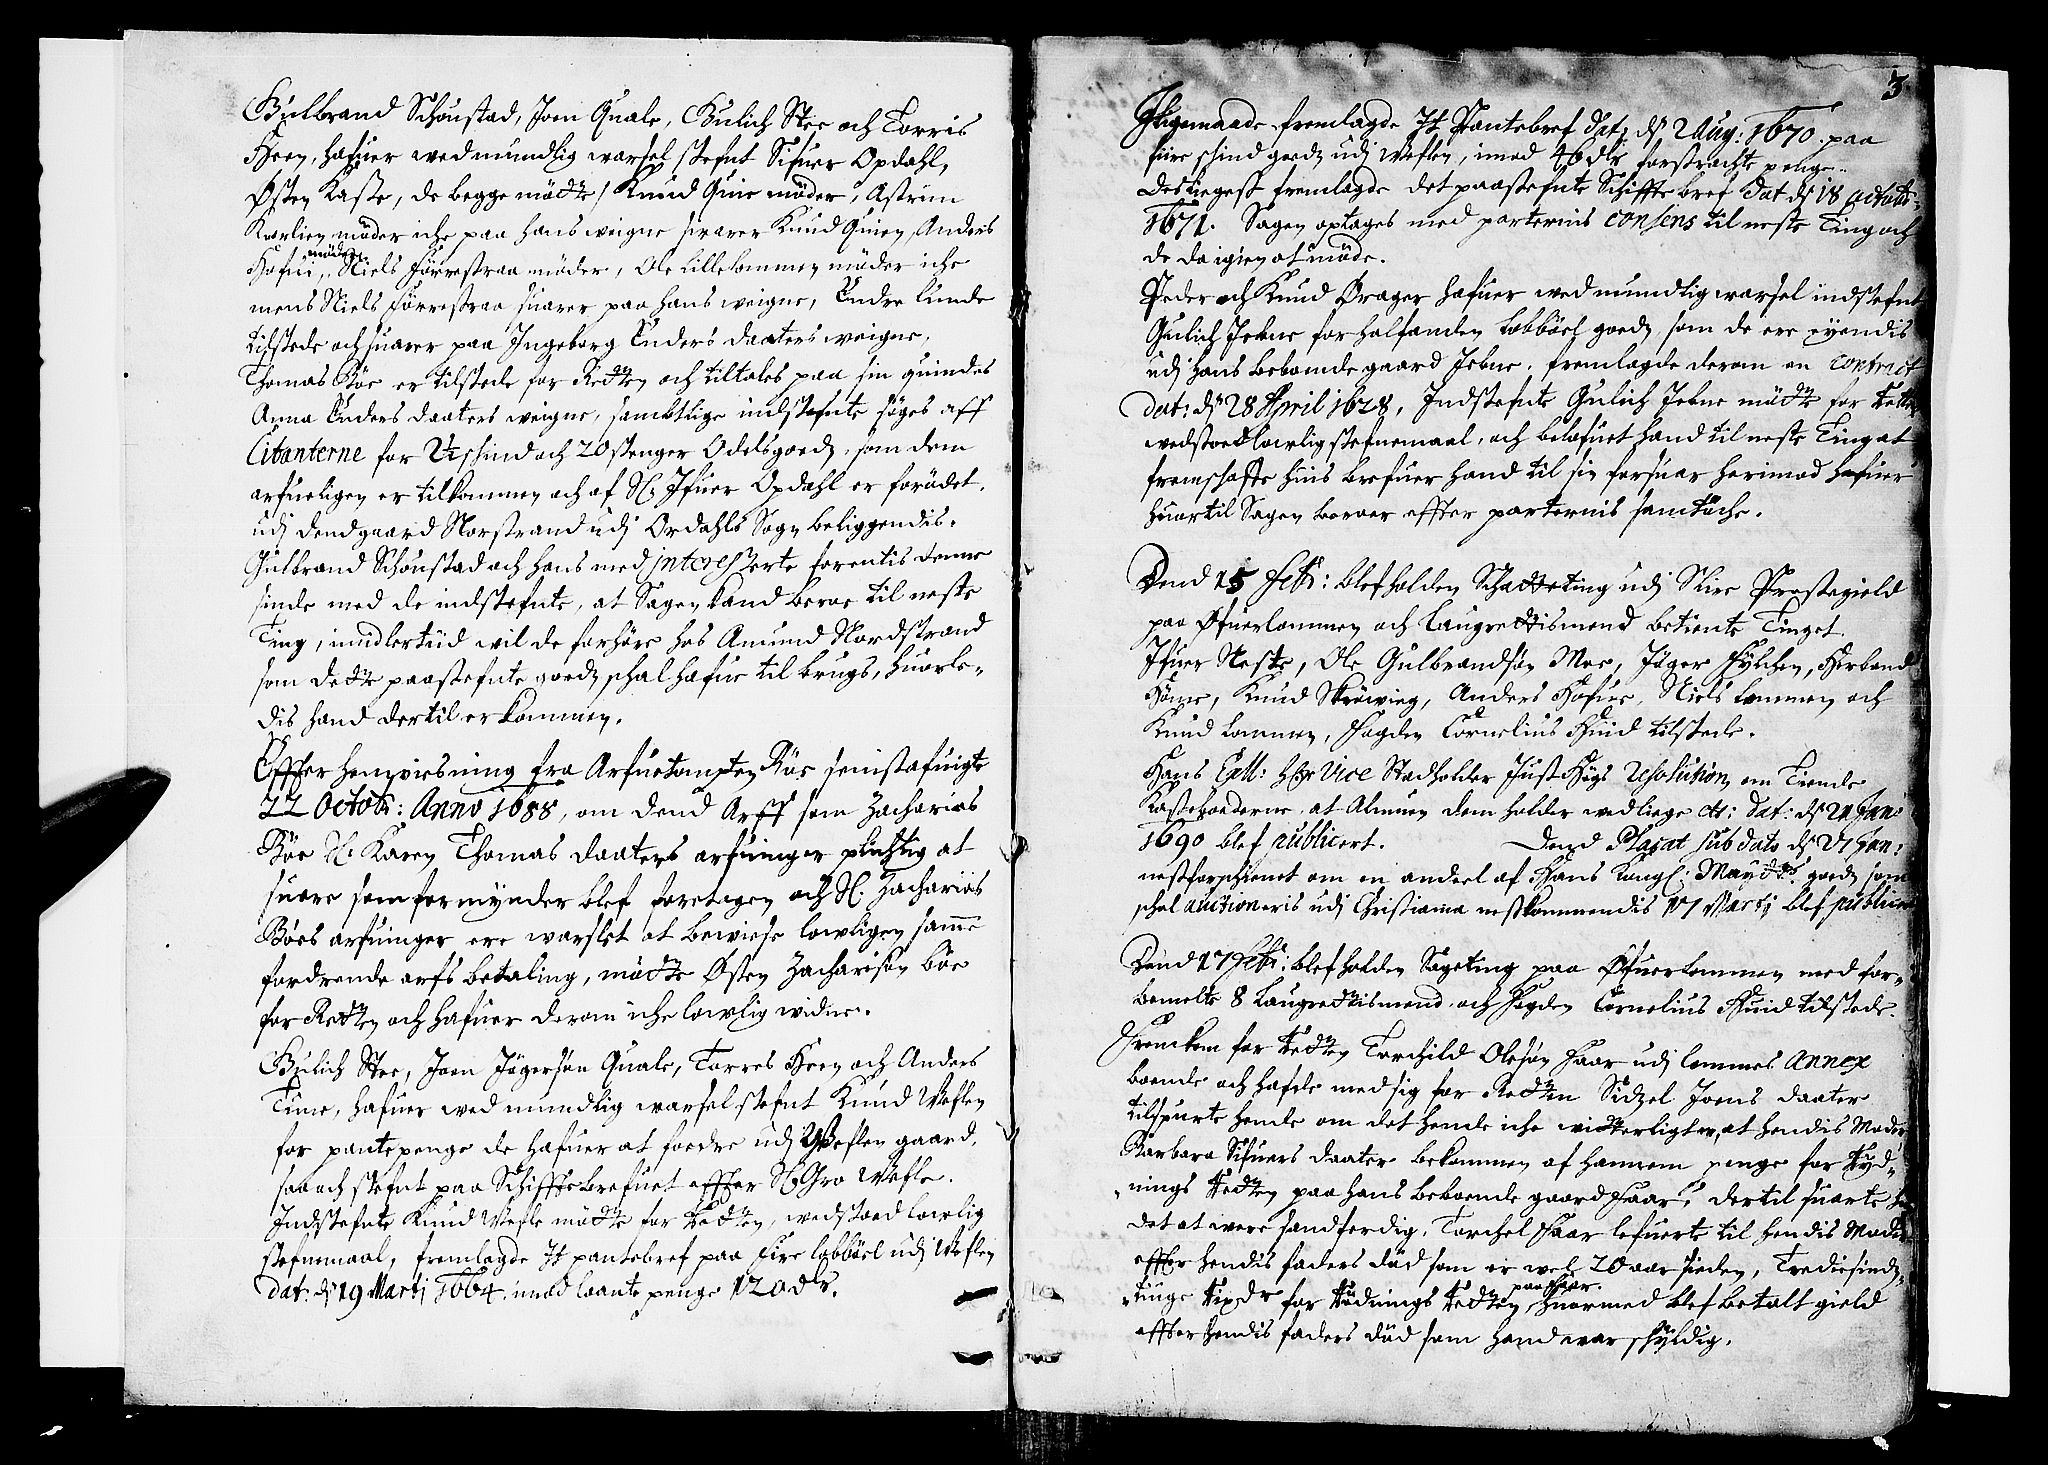 Gulbrand Schoustad, Joen Quale, Gulich Stee och Torris
Heen, hafuer wed mundlig warsel stefnt Sifuer Opdahl,
Østen Kaste, de begge mødte / Knud Quie møder, Astrim
Kwelien møder iche paa hans weigne swarer Knud Quien, Anders
Hafui, møder, Niels Førrestraa møder, Ole Lillelommen møder iche
mens Niels Førrestraa suarer paa hans weigne, Endre Lunde
tilstede och suarer paa Ingeborg Enders daaters weigne,
Thomas Bøe er tilstede for Retten och tiltales paa sin quindes
Anna Enders daaters weigne, sambtlige indstefnte søges aff
Citanterne for 2½ schind och 20 stenger Odelsgoedz, som dem
arfueligen er tilkommen och af Sl: Ifuer Opdahl er forødet,
udj dend gaard Norstrand udj Ordahls Sogn beliggendis.
Gulbrand Schoustad och hans med interesserte forentis denne
sinde med de indstefnte, at Sagen kand beroe til neste
Ting, imidlertiid wil de forhøre hos Amund Nordstrand
som dette paastefnte goedz schal hafue til brugs, huorle-
dis hand dertil er kommen.
Effter henviisning fra Arfuetompten Bøe seniste afuigte
22 Octobr: Anno 1688, om dend Arff som Zacharias
Bøe Sl. Karen Thomas daaters arfuinger plichtig at
suare som formynder blef foretagen och Sl. Zacharias
Bøes arfuinger ere warslet at bewiese lowligen samme
fordrende arfs betaling, mødte Østen Zacharisøn Bøe
for Retten och hafuer derom iche lowlig widne.
Gulich Stee, Joen Jøgersøn Quale, Torres Heen och Anders
Tune, hafuer wed mundlig warsel stefnt Knud Weflen
for pantepenge de hafuer at fordre udj Weflen gaard,
saa och stefnt paa Schifftebrefuet effter Sl Gro Wefle.
Indstefnte Knud Wefle mødte for Retten, wedstoed lowlig
stefnemaal, fremlagde It pantebref paa fire løbbøel udj Weflen
dat: dj 19 Martj 1664. imod laante penge 120 dlr.
3
Ligemaade fremlagde It Pantebref dat: dj 2 Aug: 1670. paa
fiire schind goedz udj Weflen, imod 46 dlr forstrachte penge.
Desligest fremlagde det paastefnte Schiffte bref dat dj 18 Octobr:
1671. Sagen optages med parternis Consens til neste Ting och
de da igien at møde.
Peder och Knud Ørager hafuer wed mundlig warsel indstefnt
Gulich Jebne for halfanden løbbøel goedz, som de ere eyendis
udj hans beboende gaard Jebne, fremlagde derom en Contract
dat: dj 28 April 1628, Indstefnte Gulich Jebne mødte for Retten
wedstoed lowlig stefnemaal, och belofuet hand til neste Ting at
fremschaffe huis brefuer hand til sin forsuar herimod hafuer
huortil Sagen beroer effter parternis samtøche.
Dend 15 Febr: blef holden Schatteting udj Slire Prestegield
paa Øfuerlommen och Laugrettismend betiente Tinget.
Ifuer Neste, Ole Gulbrandsøn Moe, Jøger Fylchen, Herbrand
Hame, Knud Skrøwieg, Anders Hofuer, Niels Lommen och
Knud Lommen, Fogden Cornelius Huid tilstede.
Hans Exll: Hr Vice Stadholder Just Høgs resolution om Tiende
Kasteboederne, at Almuen dem holder wed liege etc: dat: dj 24 Jan:
1690 blef publicert. Dend Placat sub dato dj 27 Jan:
nestforschienet om en andeel af Hans Kongl: Mayts: goedz som
schal auctioneris udj Christiania nestkommendis 17 Martj blef publicert
Dend 17 Febr: blef holden Sageting paa Øfuerlommen med for-
bemelte 8 Laugrettismend och Fogden Cornelius Huid tilstede.
Fremkom for Retten Torchild Olesøn Haar udj Lommes Annex
boende och hafde med sig for Retten Sidzel Joens daater
tilspurte hende om det hende iche witterligt er, at hendis Moder
Barbara Sifuers daater bekommen af hannem penge for Ryd-
nings Retten paa hans beboende gaard Haar, dertil suarte hun
det at were sandferdig, Torchel Haar lefuerte til hendis Moder
effter hendis faders død som er wel 20 aar sieden, Trediesindz-
tiuge Rixdr for Rødnings Retten paa Haar. huormed blef betalt gield
effter hendis faders død som hand war schyldig.